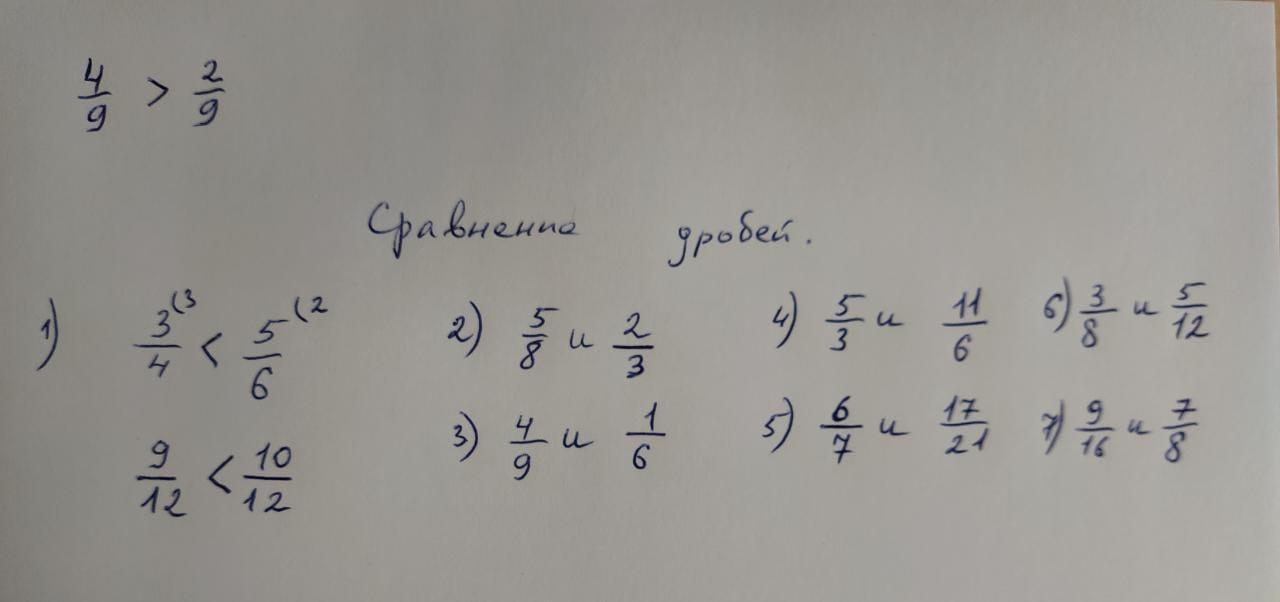 4/9 > 2/9
Сравнение дробей.
1) 3/4 (3 < 5/6 (2
9/12 < 10/12
2) 5/8 и 2/3
3) 4/9 и 1/6
4) 5/3 и 11/6
5) 6/7 и 17/21
6) 3/8 и 5/12
7) 9/16 и 7/8